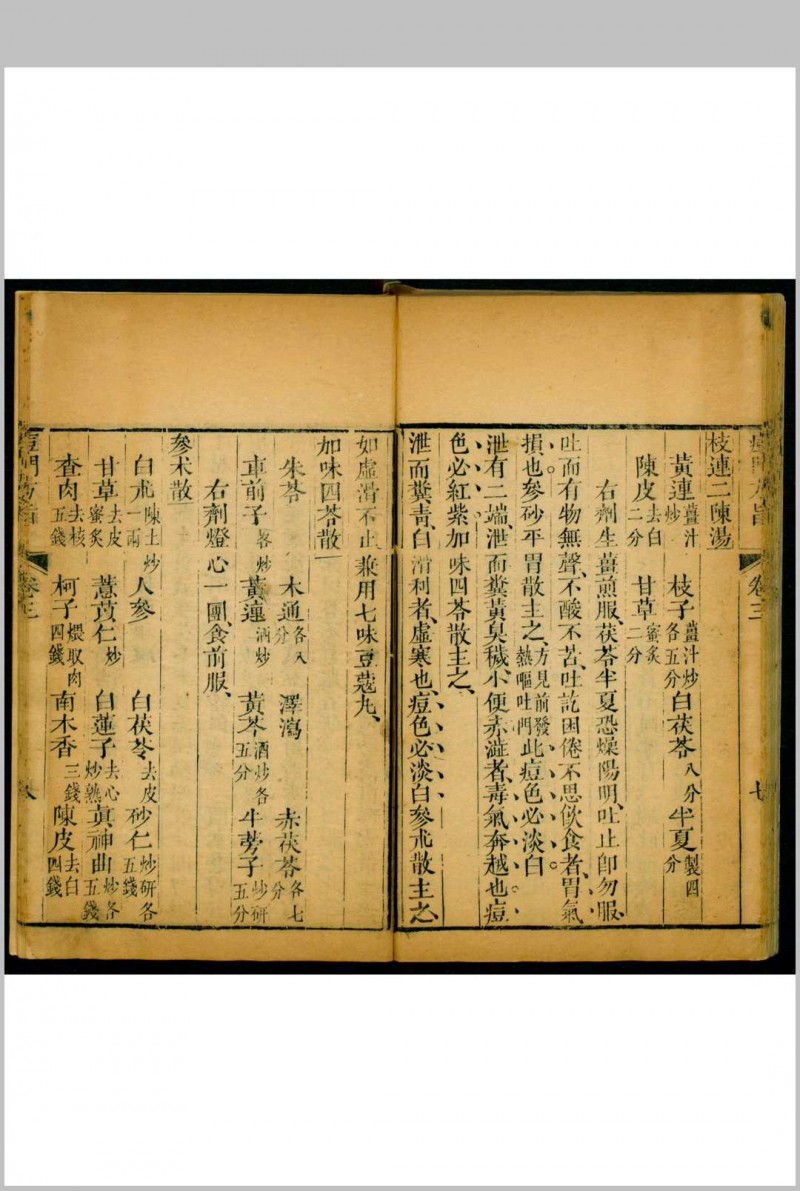 枝連二陳湯
黃連薑汁炒 枝子薑汁炒各五分 白茯苓八分 半夏製四分
陳皮去白二分 甘草蜜炙二分
右劑生薑煎服、茯苓半夏恐燥陽明、吐止卽勿服、
吐而有物無聲、不酸不苦、吐訖困倦不思飲食者、胃氣
損也參砂平胃散主之、方見前發熱嘔吐門此痘色必淡白
泄有二端、泄而糞黃臭穢、小便赤澁者、毒氣奔越也痘
色必紅紫加味四苓散主之、
泄而糞靑、白滑利者、虛寒也、痘色必淡白參朮散主之、
卷三
七
如虛滑不止兼用七味豆蔻丸、
加味四苓散
朱苓 木通各八分 澤瀉 赤茯苓各七分
車前子畧炒 黃連酒炒 黃芩酒炒各五分 牛蒡子炒研五分
右劑燈心一團、食前服、
參朮散
白朮陳土炒一兩 人參 白茯苓去皮 砂仁炒研各五錢
甘草去皮蜜炙 薏苡仁炒 白蓮子去心炒熟 眞神曲炒各五錢
查肉去核五錢 柯子煨取肉四錢 南木香三錢 陳皮去白四錢
卷三
八